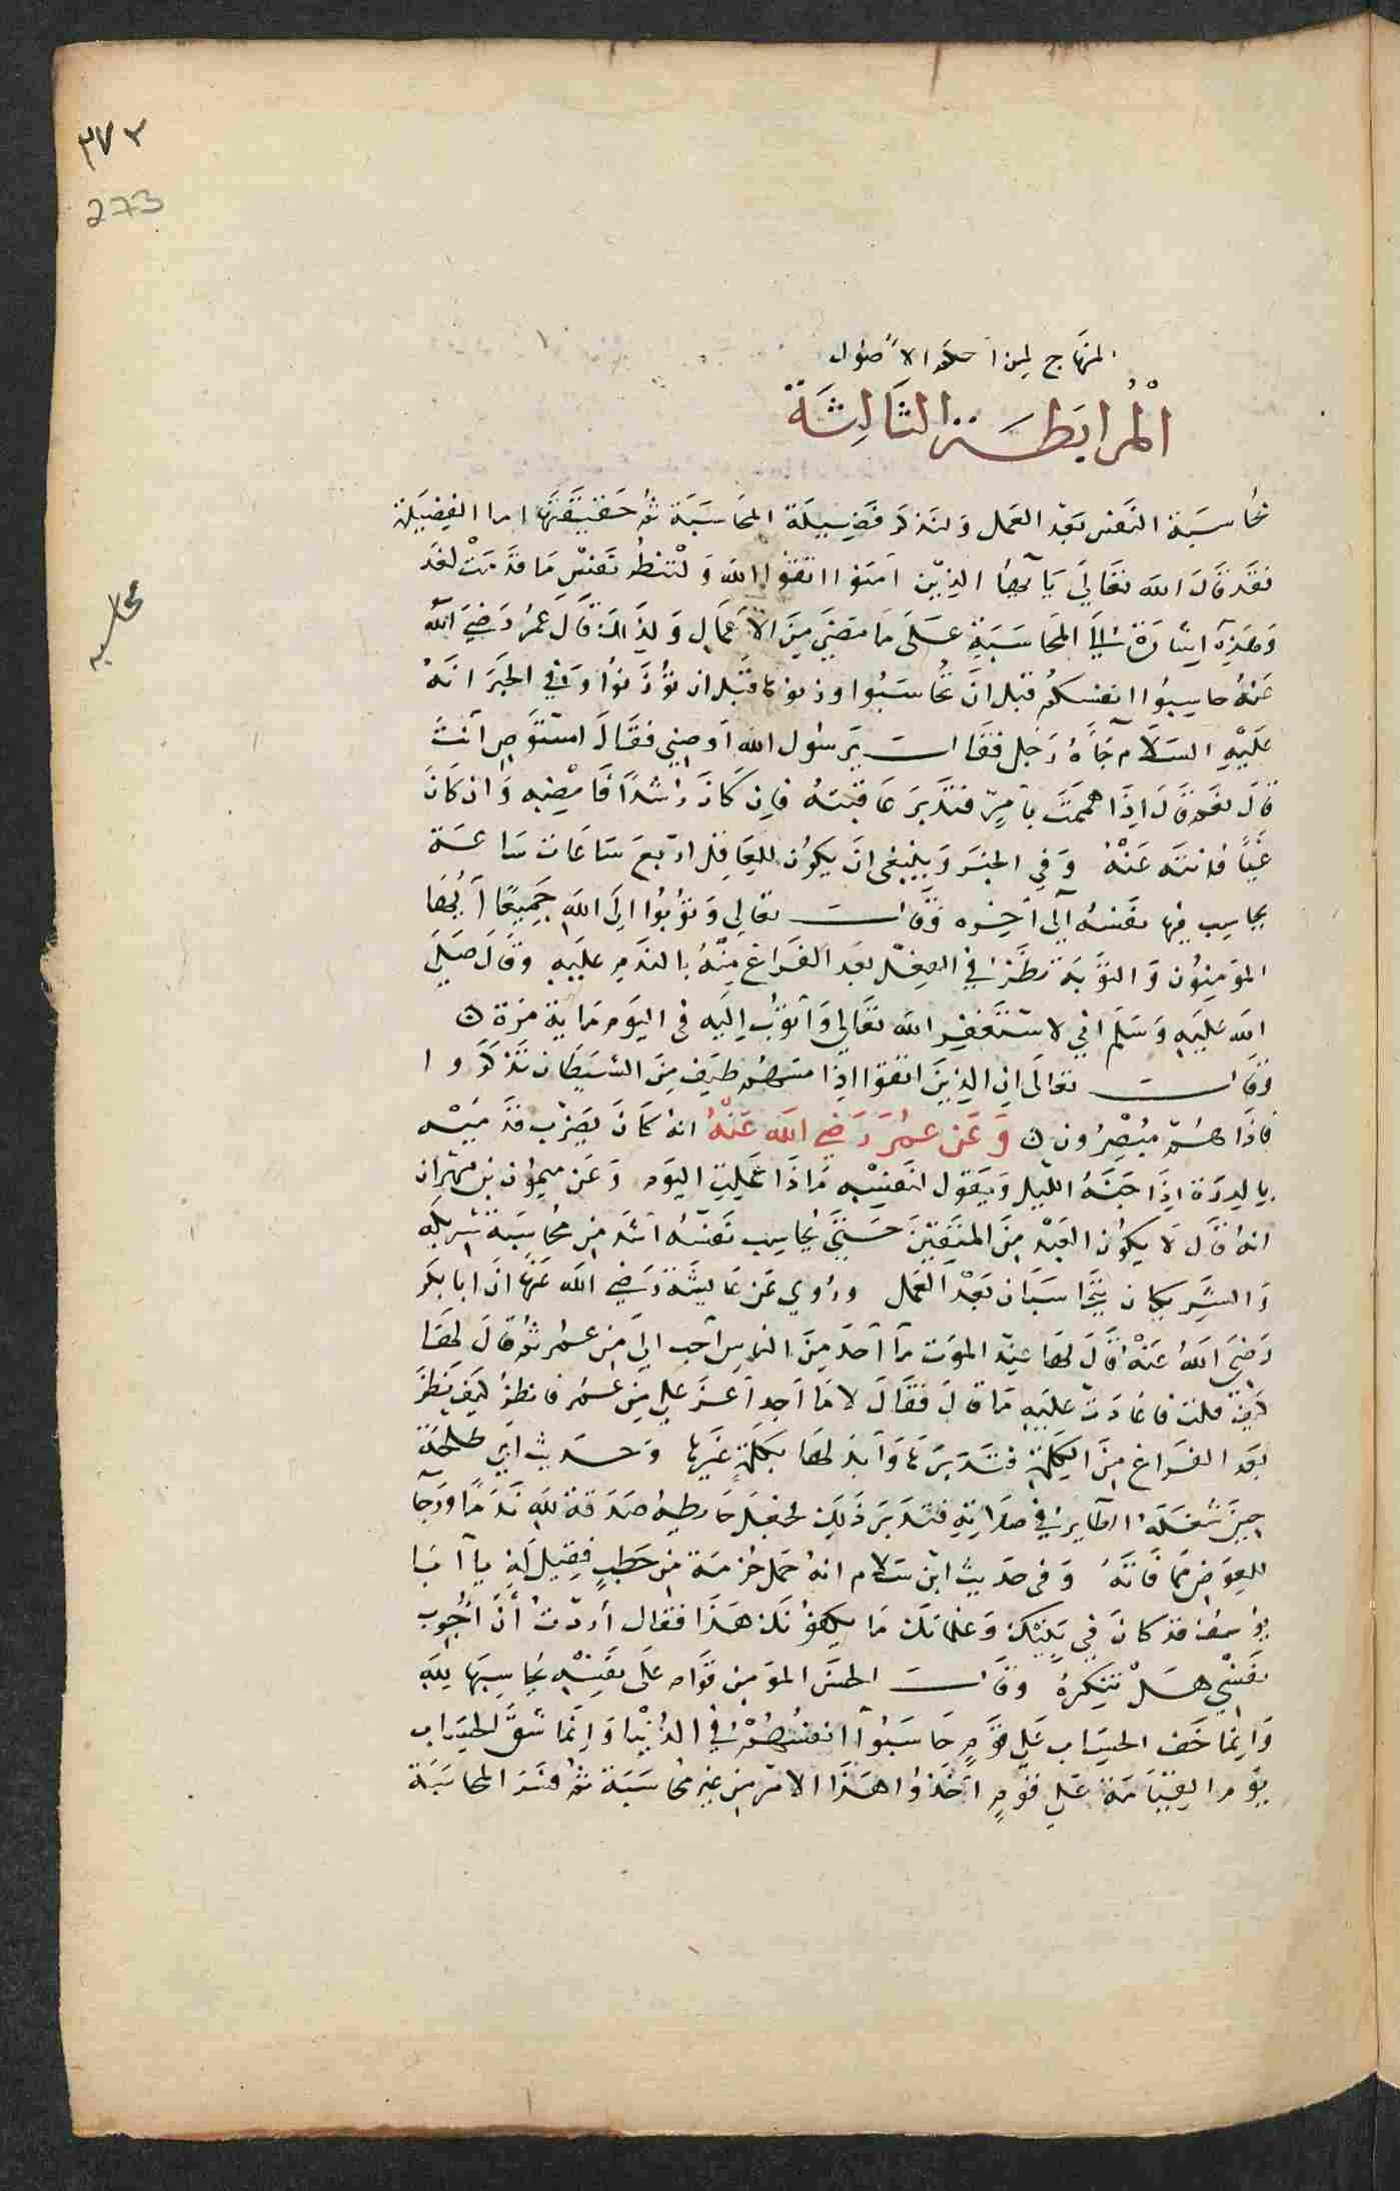 ٢٧٣
273
المنهاج لمن احكم الاصول
الْمُرابَطَة الثَالِثَة
محاسبه
مُحَاسَبَة النَفس بَعْد العَمل وَلنذكر فَضِيلَة المحَاسَبَة ثم حَقيقَتَها اما الفضِيلة
فقَد قَالَ الله تعَالَى يَا ايها الذِين امَنُوا اتقوا الله وَلْتَنظُر نَفسٌ مَا قدَّمَتْ لغَد
وَهَذِه اِشَارَة اِلَى المحَاسَبَةِ عَلَى مَا مَضَى مِنَ الاَعمَالِ وَلِذَالكَ قَالَ عُمَرُ رَضِيَ الله
عَنهُ حاسِبُوا انفسكُم قبل انْ تُحَاسَبُوا وزنوها قَبل ان تُوزَنُوا وَفي الخبَر انَهُ
عَلَيْهِ السَلَام جَآءَهُ رَجُل فقَالــــ يَرسُول الله اَوصِنِي فقَالَ امُسْتَوصٍ اَنتَ
قَالَ نعَم قَالَ اِذَا هممَتَ بِاَمرٍ فتَدَبرَ عَاقبَتهُ فاِن كَانَ رَاشْداً فَامْضِه وَان كَانَ
غَياً فانتَه عَنْهُ وَفي الخبَر وَيَنبغى انَ يكوُن للعَاقِل اربَع سَاعَات سَاعَة
يحاسِب فِيها نفَسهُ اِلَى آخِره وَقَالــــ تعَالى وَتُوبُوا اِلَى الله جَمِيعًا اَيُّهَا
المؤمِنوُن وَالتوَبَة نظَرٌ في الفِعْل بَعد الفَرَاغ مِنْهُ بالندَمِ علَيهِ وَقَالَ صَلَى
الله عَليَهِ وَسَلَّم اني لاستَغفِر الله تعَالى وَاَتوُبُ اِليَه فى اليَوم مَاية مَرَة
وَقَالــــ تعَالَى اِن الذِينَ اتقوا اِذَا مَسَّهُم طَيف مِنَ الشَيطَان تذَكَرَوا
فاِذَا هُمْ مُبْصِرُون وَعَن عُمَرَ رَضِيَ الله عَنْهُ انهُ كَانَ يَضرِب قدَمَيْه
بالدِرَة اِذَا جَنَّهُ اللَيل وَيَقول لنَفسِهِ مَاذَا عَمِلتِ اليَوم وَعَن مَيموُن بن مهران
انهُ قَالَ لَا يكوُن العَبْد مِنَ المتَقِينَ حَتَّى يُحَاسِب نفَسَهُ اَشَد مِن مُحَاسَبَة شَرِيكه
وَالشَرِيكان يتَحَاسَبَان بَعْدَ العَمل ورُوي عَن عَايشَة رَضي الله عَنهَا انَ ابا بكر
رَضيَ اللهُ عَنْهُ قَالَ لهَا عِند الموَت مَا اَحَدَ مِنَ النَاسِ اَحب الىَ مِن عمر ثم قَالَ لهَا
كَيفَ قلت فاعَادَت عليَه مَا قَالَ فقَالَ لا مَا اَحدٌ اَعزَ علي مِن عُمَر فانظر كيَف نَظَر
بَعد الفَرَاغ مِنَ الكلِمَة فتَدَبرَهَا وَاَبدَلهَا بكلِمَة غَيرها وَحَديث ابي طلحَة
حِينَ شَغلَهُ الطَايرُ في صلَاتِهِ فتَدَبَرَ ذَلِكَ فجَعَلَ حَايطِهُ صَدَقة لله نَدَمًا وَرَجَآ
للعِوَض مما فَاتَهُ وَفى حَديث ابن سَلام انهُ حَمل حُزمَة مِن حَطبٍ فقيلَ لَهُ يا اَبَا
يوُسُف قد كانَ في بَنيِكَ وَغلمَانك مَا يكفونَكَ هَذَا فقَال اَردتُ أَنْ اُجرِب
نَفسِي هَلْ تنكِرهُ وقَالــــ الحسَن المؤمِن قوَام عَلَى نفسِهِ يحَاسِبهَا لله
وَاِنما خَف الحسَاب عَلَى قوَم حَاسَبُوا انفسُهُمْ في الدُنيَا وَاِنَما شَقَّ الحسَاب
يَوم القِيَامَة عَلى قومٍ اَخَذُوا هَذَا الامَر مِن غير محَاسَبَة ثم فسَرَ المحَاسَبَة